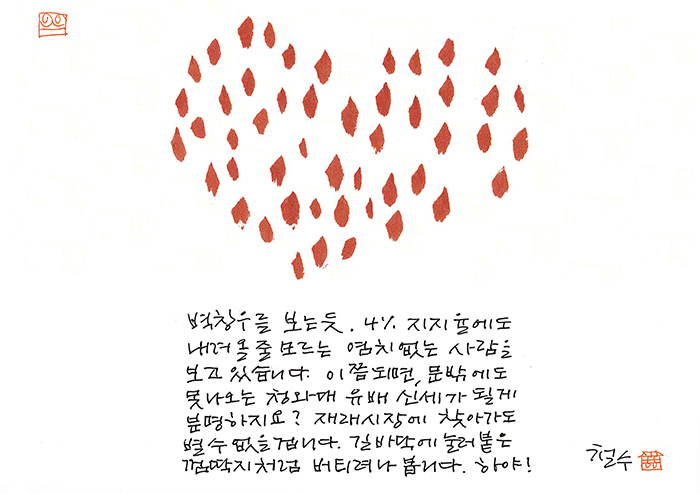 벽창우를 보는듯. 4% 지지율에도
내려올 줄 모르는 염치없는 사람을
보고 있습니다. 이쯤되면, 문밖에도
못나오는 청와대 유배 신세가 될게
분명하지요? 재래시장에 찾아가도
별 수 없을겁니다. 길바닥에 눌러붙은
껌딱지처럼 버티려나 봅니다. 하야!
철수